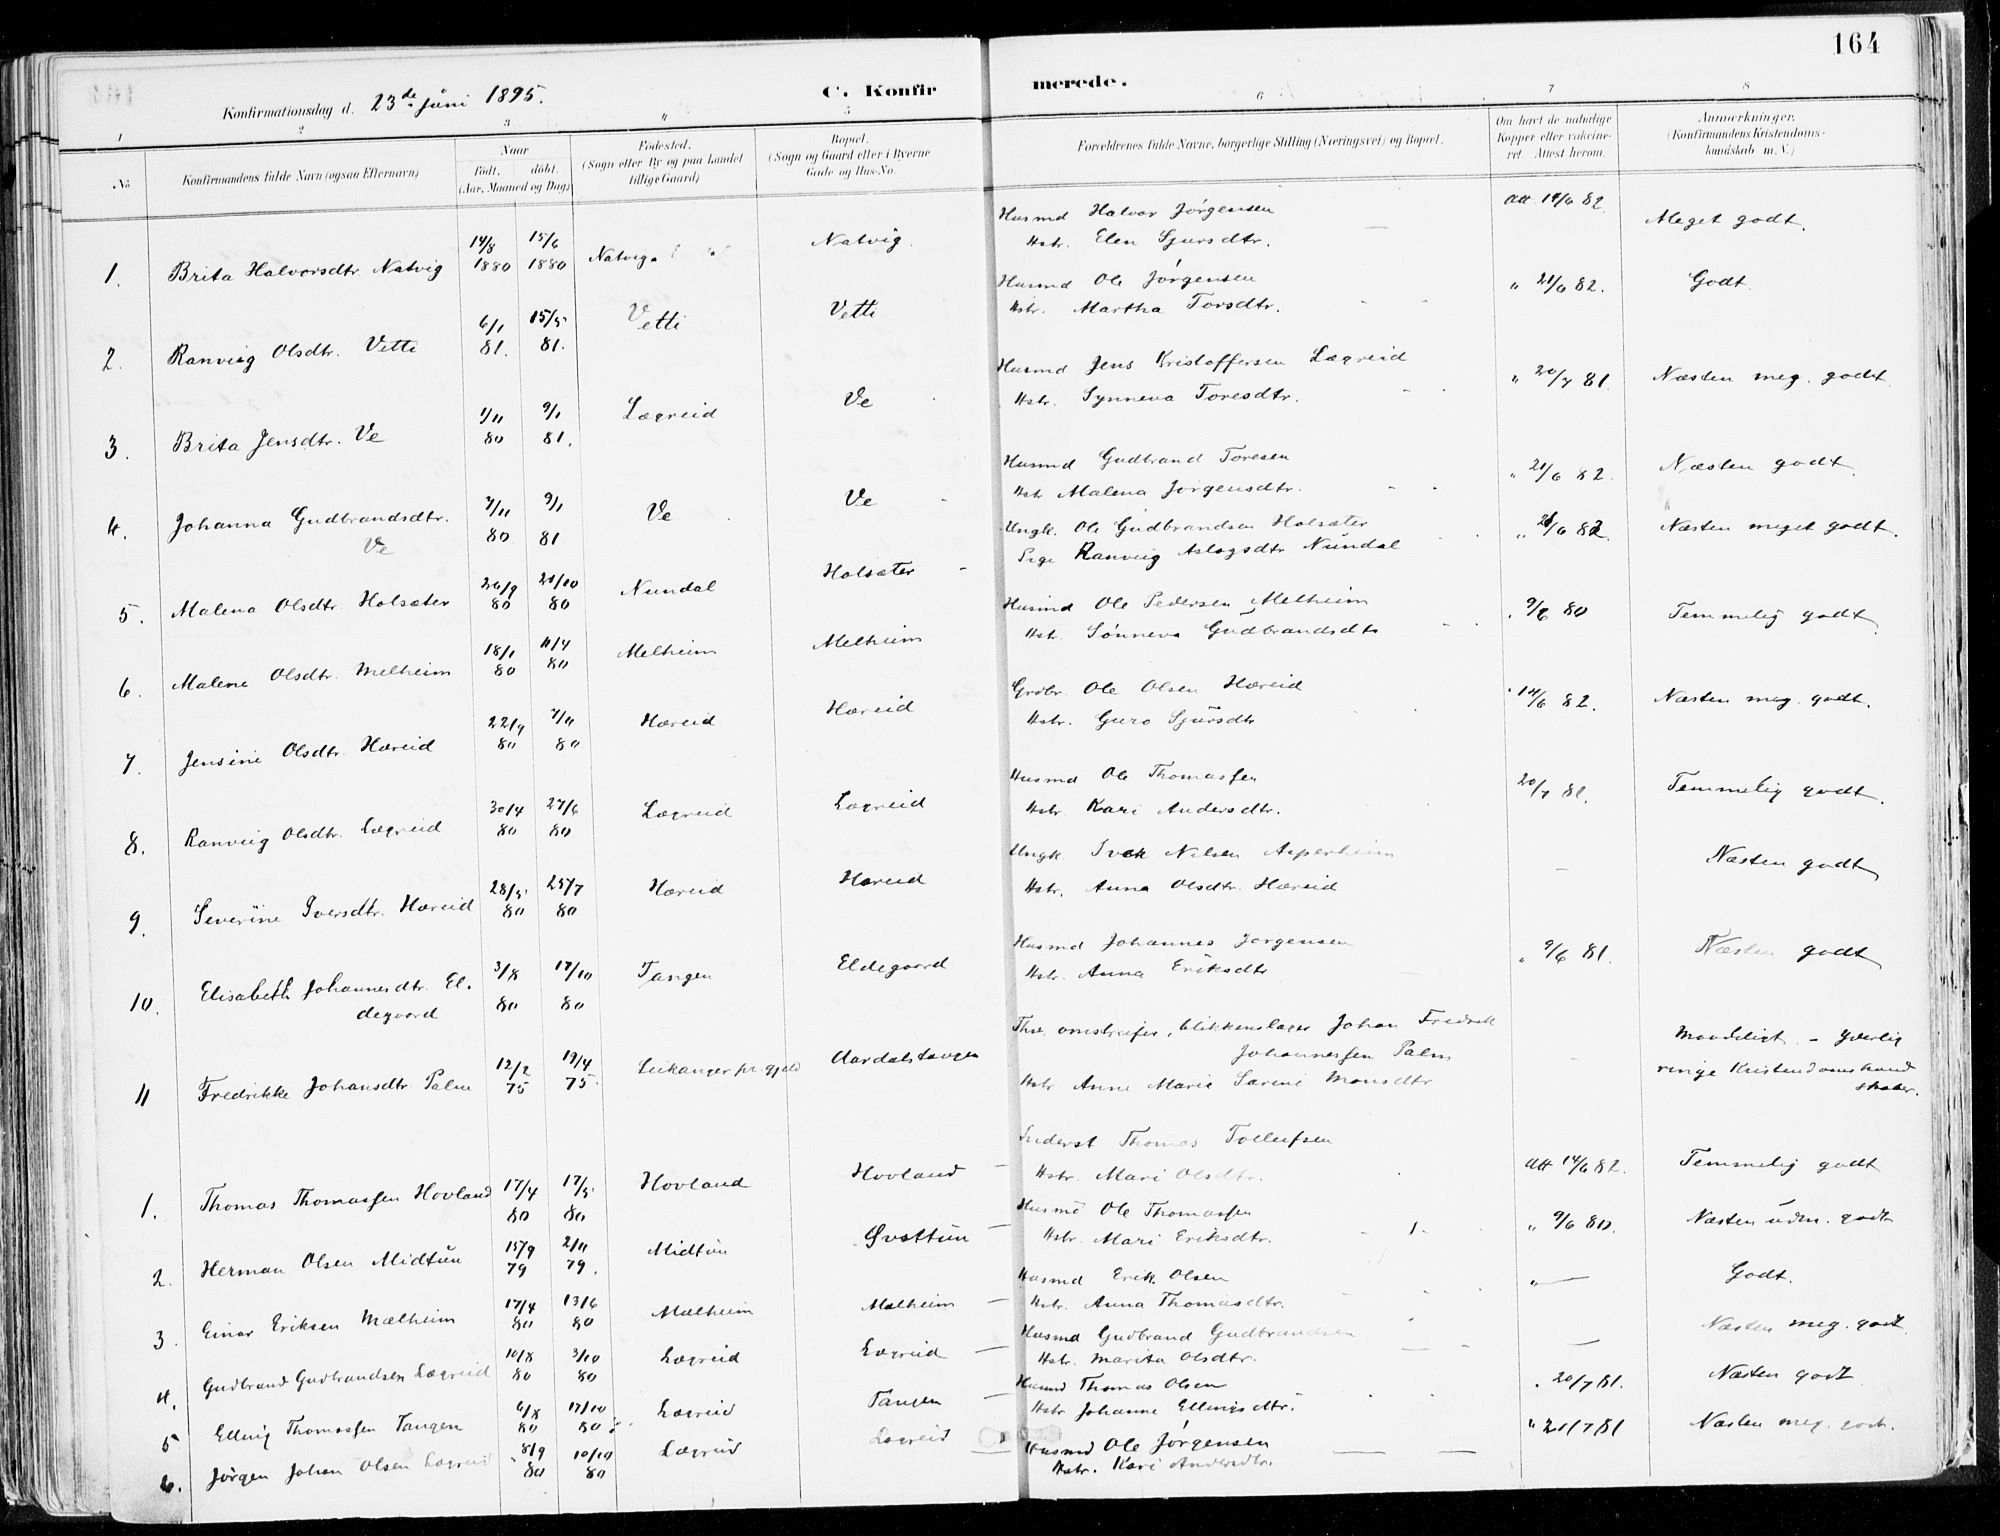 164
Konfirmationsdag d. 23de Juni 1895.
C. Konfirmerede.
1 2 3 4 5 6 7 8
No
Konfirmandens fulde Navn (ogsaa Efternavn)
Naar
født. døbt.
(Aar, Maaned og Dag)
Fødested.
(Sogn eller By og paa Landet
tillige Gaard)
Bopæl.
(Sogn og Gaard eller i Byerne
Gade og Hus-No.
Forældrenes fulde Navne, borgerlige Stilling (Næringsvei) og Bopæl.
Om havt de naturlige
Kopper eller vakcine-
ret. Attest herom.
Anmærkninger.
(Konfirmandens Kristendoms-
kundskab m. V.)
1. Brita Halvorsdtr. Natvig 14/8 1880 15/6 1880 Natvig Natvig. Husmd Halvor Jørgensen Att. 14/6 82. Meget godt.
Hstr. Elen Sjursdtr.
2. Ranveig Olsdtr. Vetti 6/1 81. 15/5 81. Vetti Vetti Husmd Ole Jørgensen " 21/6 82. Godt.
Hstr. Martha Torsdtr.
3. Brita Jensdtr. Ve 1/11 80 9/1 81. Lægreid Ve Husmd Jens Kristoffersen Lægreid " 20/7 81. Næsten meg. godt.
Hstr. Synneva Toresdtr.
4. Johanna Gudbrandsdtr. 7/11 80 9/1 81 Ve Ve Husmd Gudbrand Toresen " 21/6 82. Næsten godt.
Ve
Hstr Malena Jørgensdtr.
5. Malena Olsdtr. Holsæter 26/9 80 21/10 80 Nundal Holsæter Ungk. Ole Gudbrandsen Holsæter " 21/6 82. Næsten meget godt.
Pige Ranveig Aslagsdtr Nundal
6. Malene Olsdtr. Melheim 18/1 80 11/4 80 Melheim Melheim Husmd Ole Pedersen Melheim 9/6 80 Temmelig godt.
Hstr. Sønneva Gudbrandsdtr
7. Jensine Olsdtr. Hæreid 22/9 80 7/11 80 Hæreid Hæreid Grdbr. Ole Olsen Hæreid " 14/6 82. Næsten meg. godt.
Hstr. Guro Sjursdtr
8. Ranveig Olsdtr. Lægreid 30/4 80 27/6 80 Lægreid Lægreid Husmd Ole Thomassen 20/7 81. Temmelig godt.
Hstr. Kari Andersdtr.
9. Severine Iversdtr. Hæreid 28/5 80 25/7 80 Hæreid Hæreid Ungk. Iver Nilsen Asperheim — Næsten godt
Hstr. Anna Olsdtr. Hæreid
10. Elisabeth Johannesdtr. El- 3/8 80 17/10 80 Tangen Eldegaard Husmd Johannes Jørgensen " 9/6 81. Næsten godt
degaard
Hstr. Anna Eriksdtr
11 Fredrikke Johansdtr. Palm 12/2 75 19/4 75. Leikanger pr.gjeld Aardalstangen Fhv. omstreifer, blikkenslager Johan Fredrik — Maadeligt - yderlig
Johannessen Palm ringe Kristendomskund
Hstr Anne Marie Sarine Monsdtr skaber.
1. Thomas Thomassen Hovland 17/4 80 17/5 80 Hovland Hovland Inderst Thomas Tollefsen Att 14/6 82. Temmelig godt
Hstr. Mari Olsdtr.
2. Herman Olsen Midtun 15/9 79 2/11 79. Midtun Øvsttun Husmd Ole Thomassen " 9/6 80. Næsten udm. godt
Hstr. Mari Eriksdtr.
3. Einar Eriksen Mælheim 17/4 80 13/6 80 Mælheim Mælheim Husmd Erik Olsen " — Godt.
Hstr. Anna Thomasdtr.
4. Gudbrand Gudbrandsen Lægreid 10/8 80 3/10 80 Lægreid Lægreid Husmd Gudbrand Gudbrandsen — Næsten meg. godt
Hstr. Marita Olsdtr.
5 Elling Thomassen Tangen 6/8 80 17/10 80 Lægreid Tangen Husmd Thomas Olsen " 20/7 81. Næsten godt
Hstr Johanne Ellingsdtr.
6. Jørgen Johan Olsen Lægreid 8/9 80 10/10 80 Lægreid Lægreid Husmd Ole Jørgensen " 20/7 81 Næsten meg. godt.
Hstr. Kari Andersdtr.